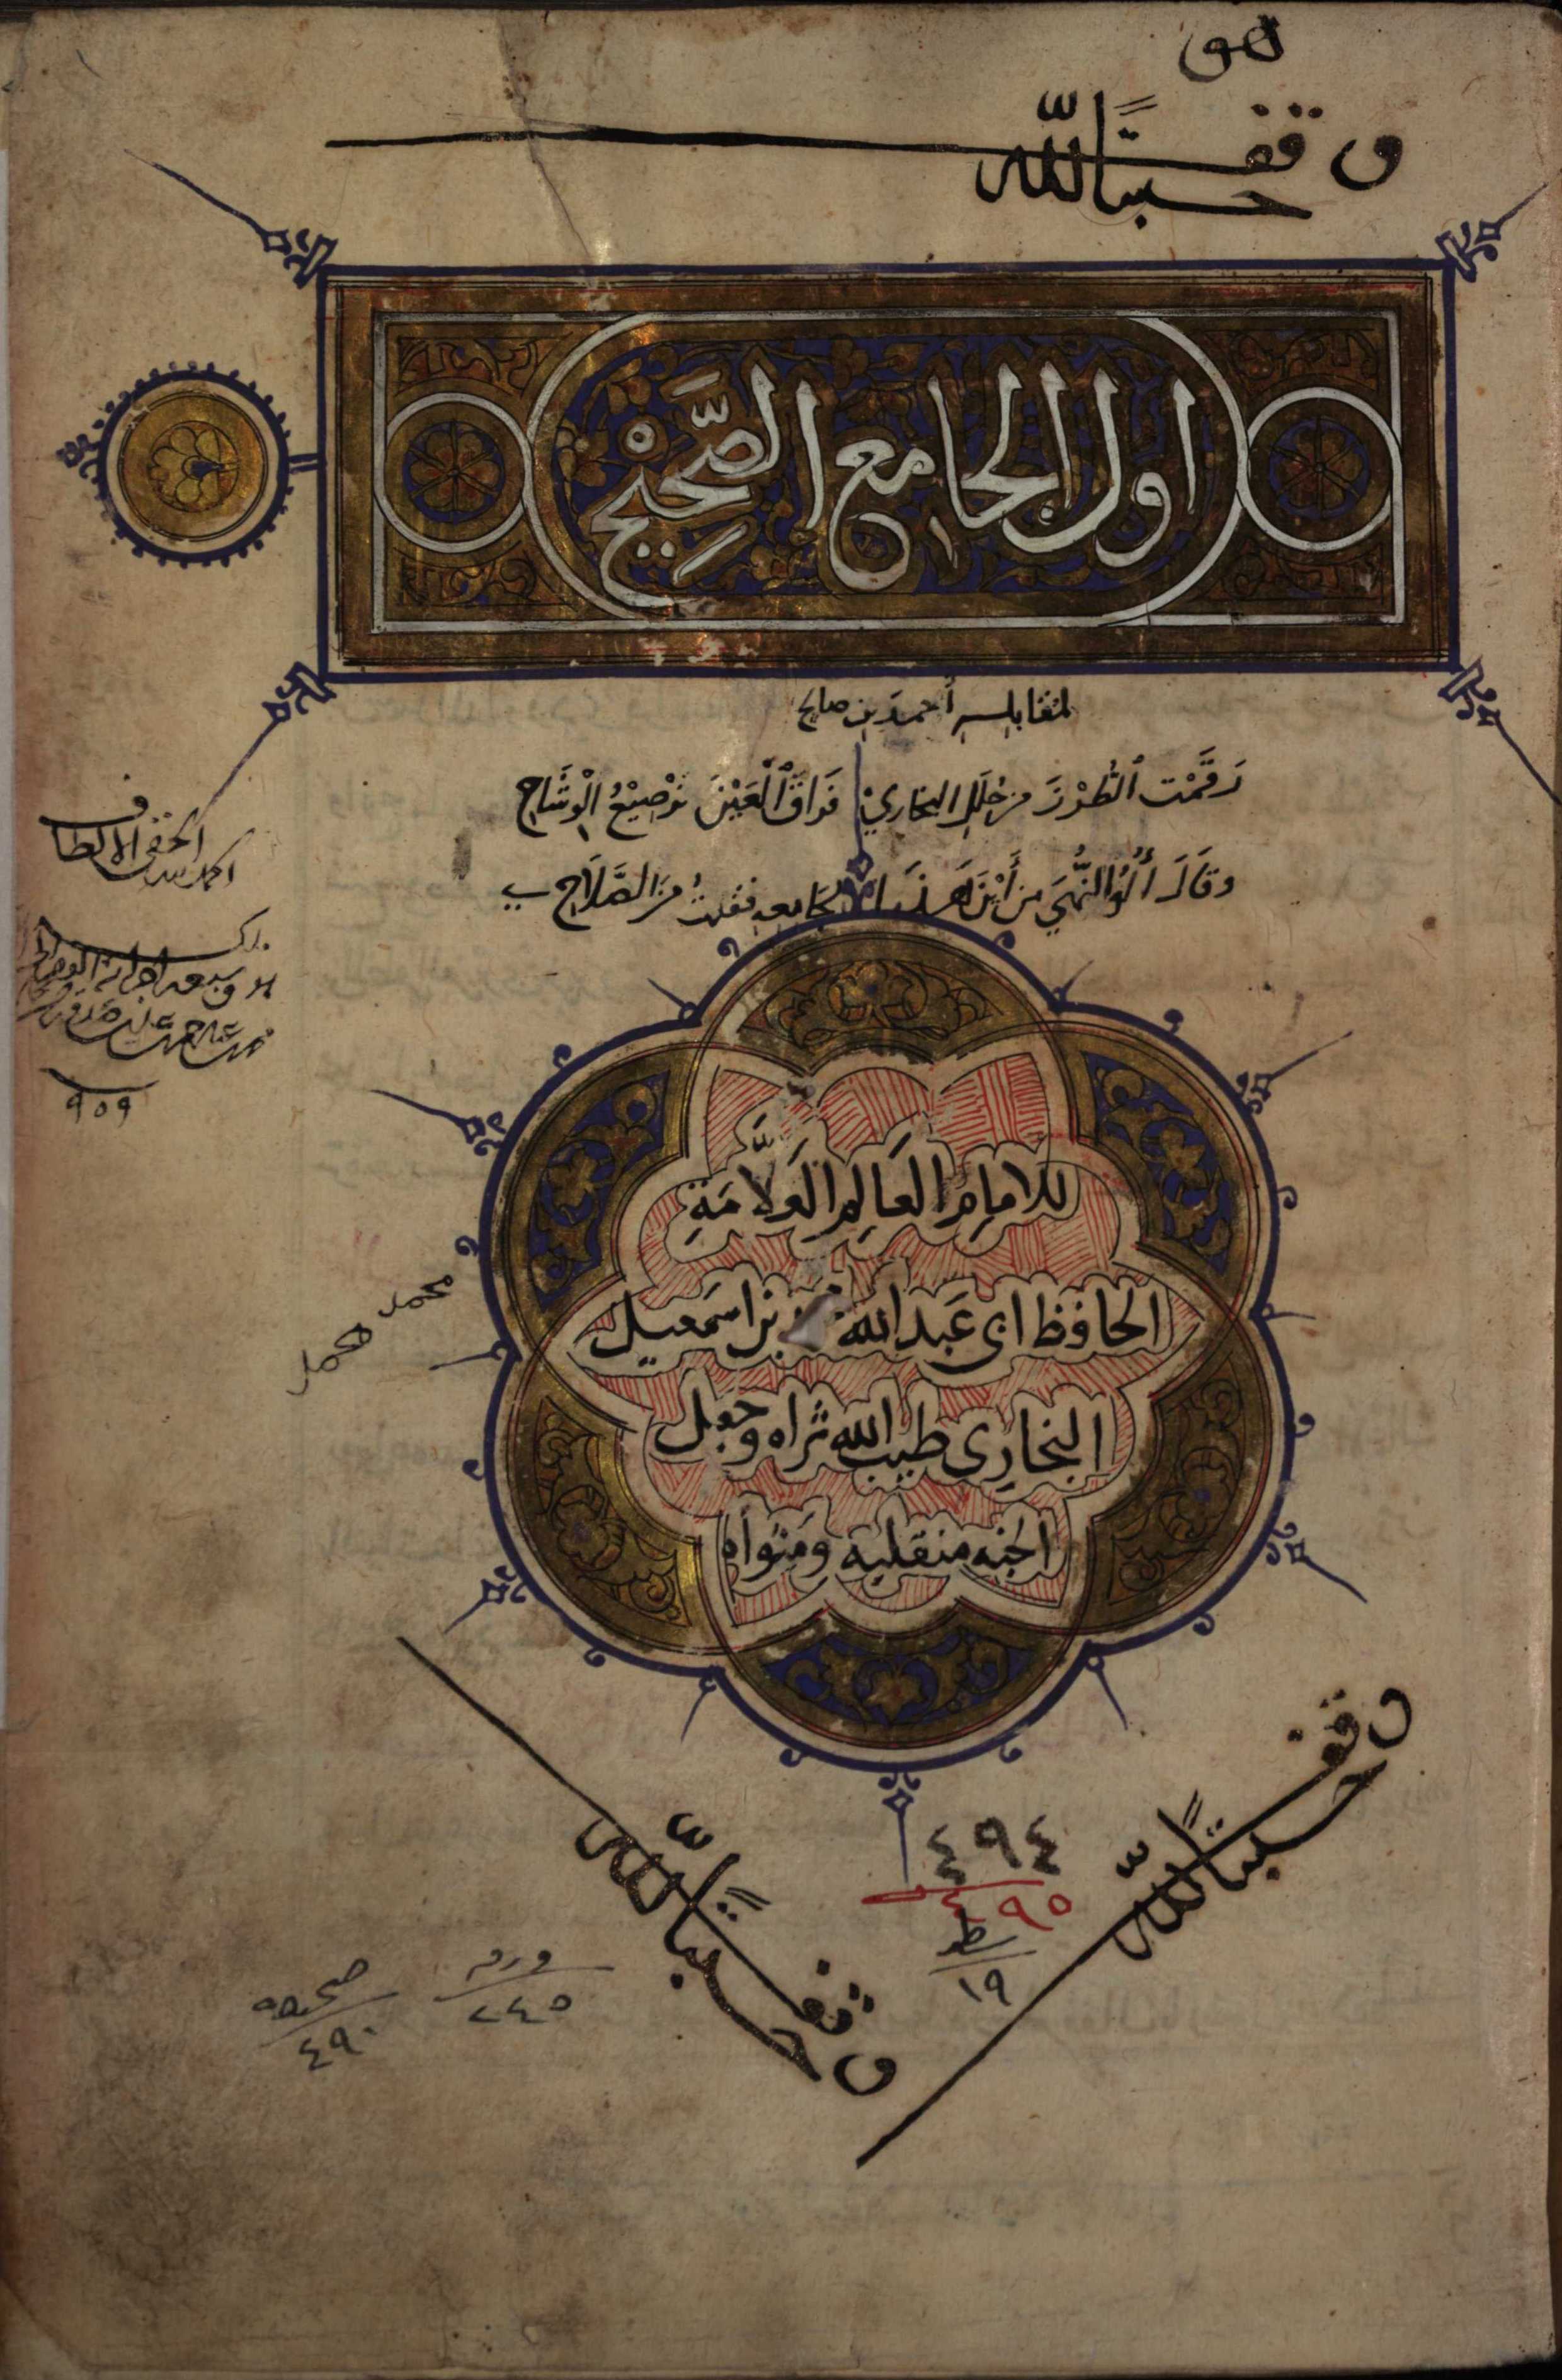 وقف
وقفا
حسبنا الله
اول الجامع الصَّحِيْح
لمقابلـه أحمد بن صالح
رَقَمْت الطُّرْزَ من حُلَلِ البخاريْ فَرَاقَ الْعَيْنَ تَرْصِيْعُ الْوِشَاحِ
وقَالَ أُلُوْا النُّهَي من أَيْنَ هَذَا لجَامعه فقلتُ مِنَ الصَّلَاحِ
الحمد لله
٩٥٩
للامام العَالِم العَلَّامَةِ
الحافظ ابى عَبد الله محمد بن اسمعيل
البخارى طيب الله ثراه وجعل
الجنه منقلبه ومثواه
محمد محمد
وقفا
حسبنا الله
وقفا
حسبنا الله
٤٩٤
٤٩٥
سطر
١٩
ورق
٢٤٥
صحيفه
٤٩٠